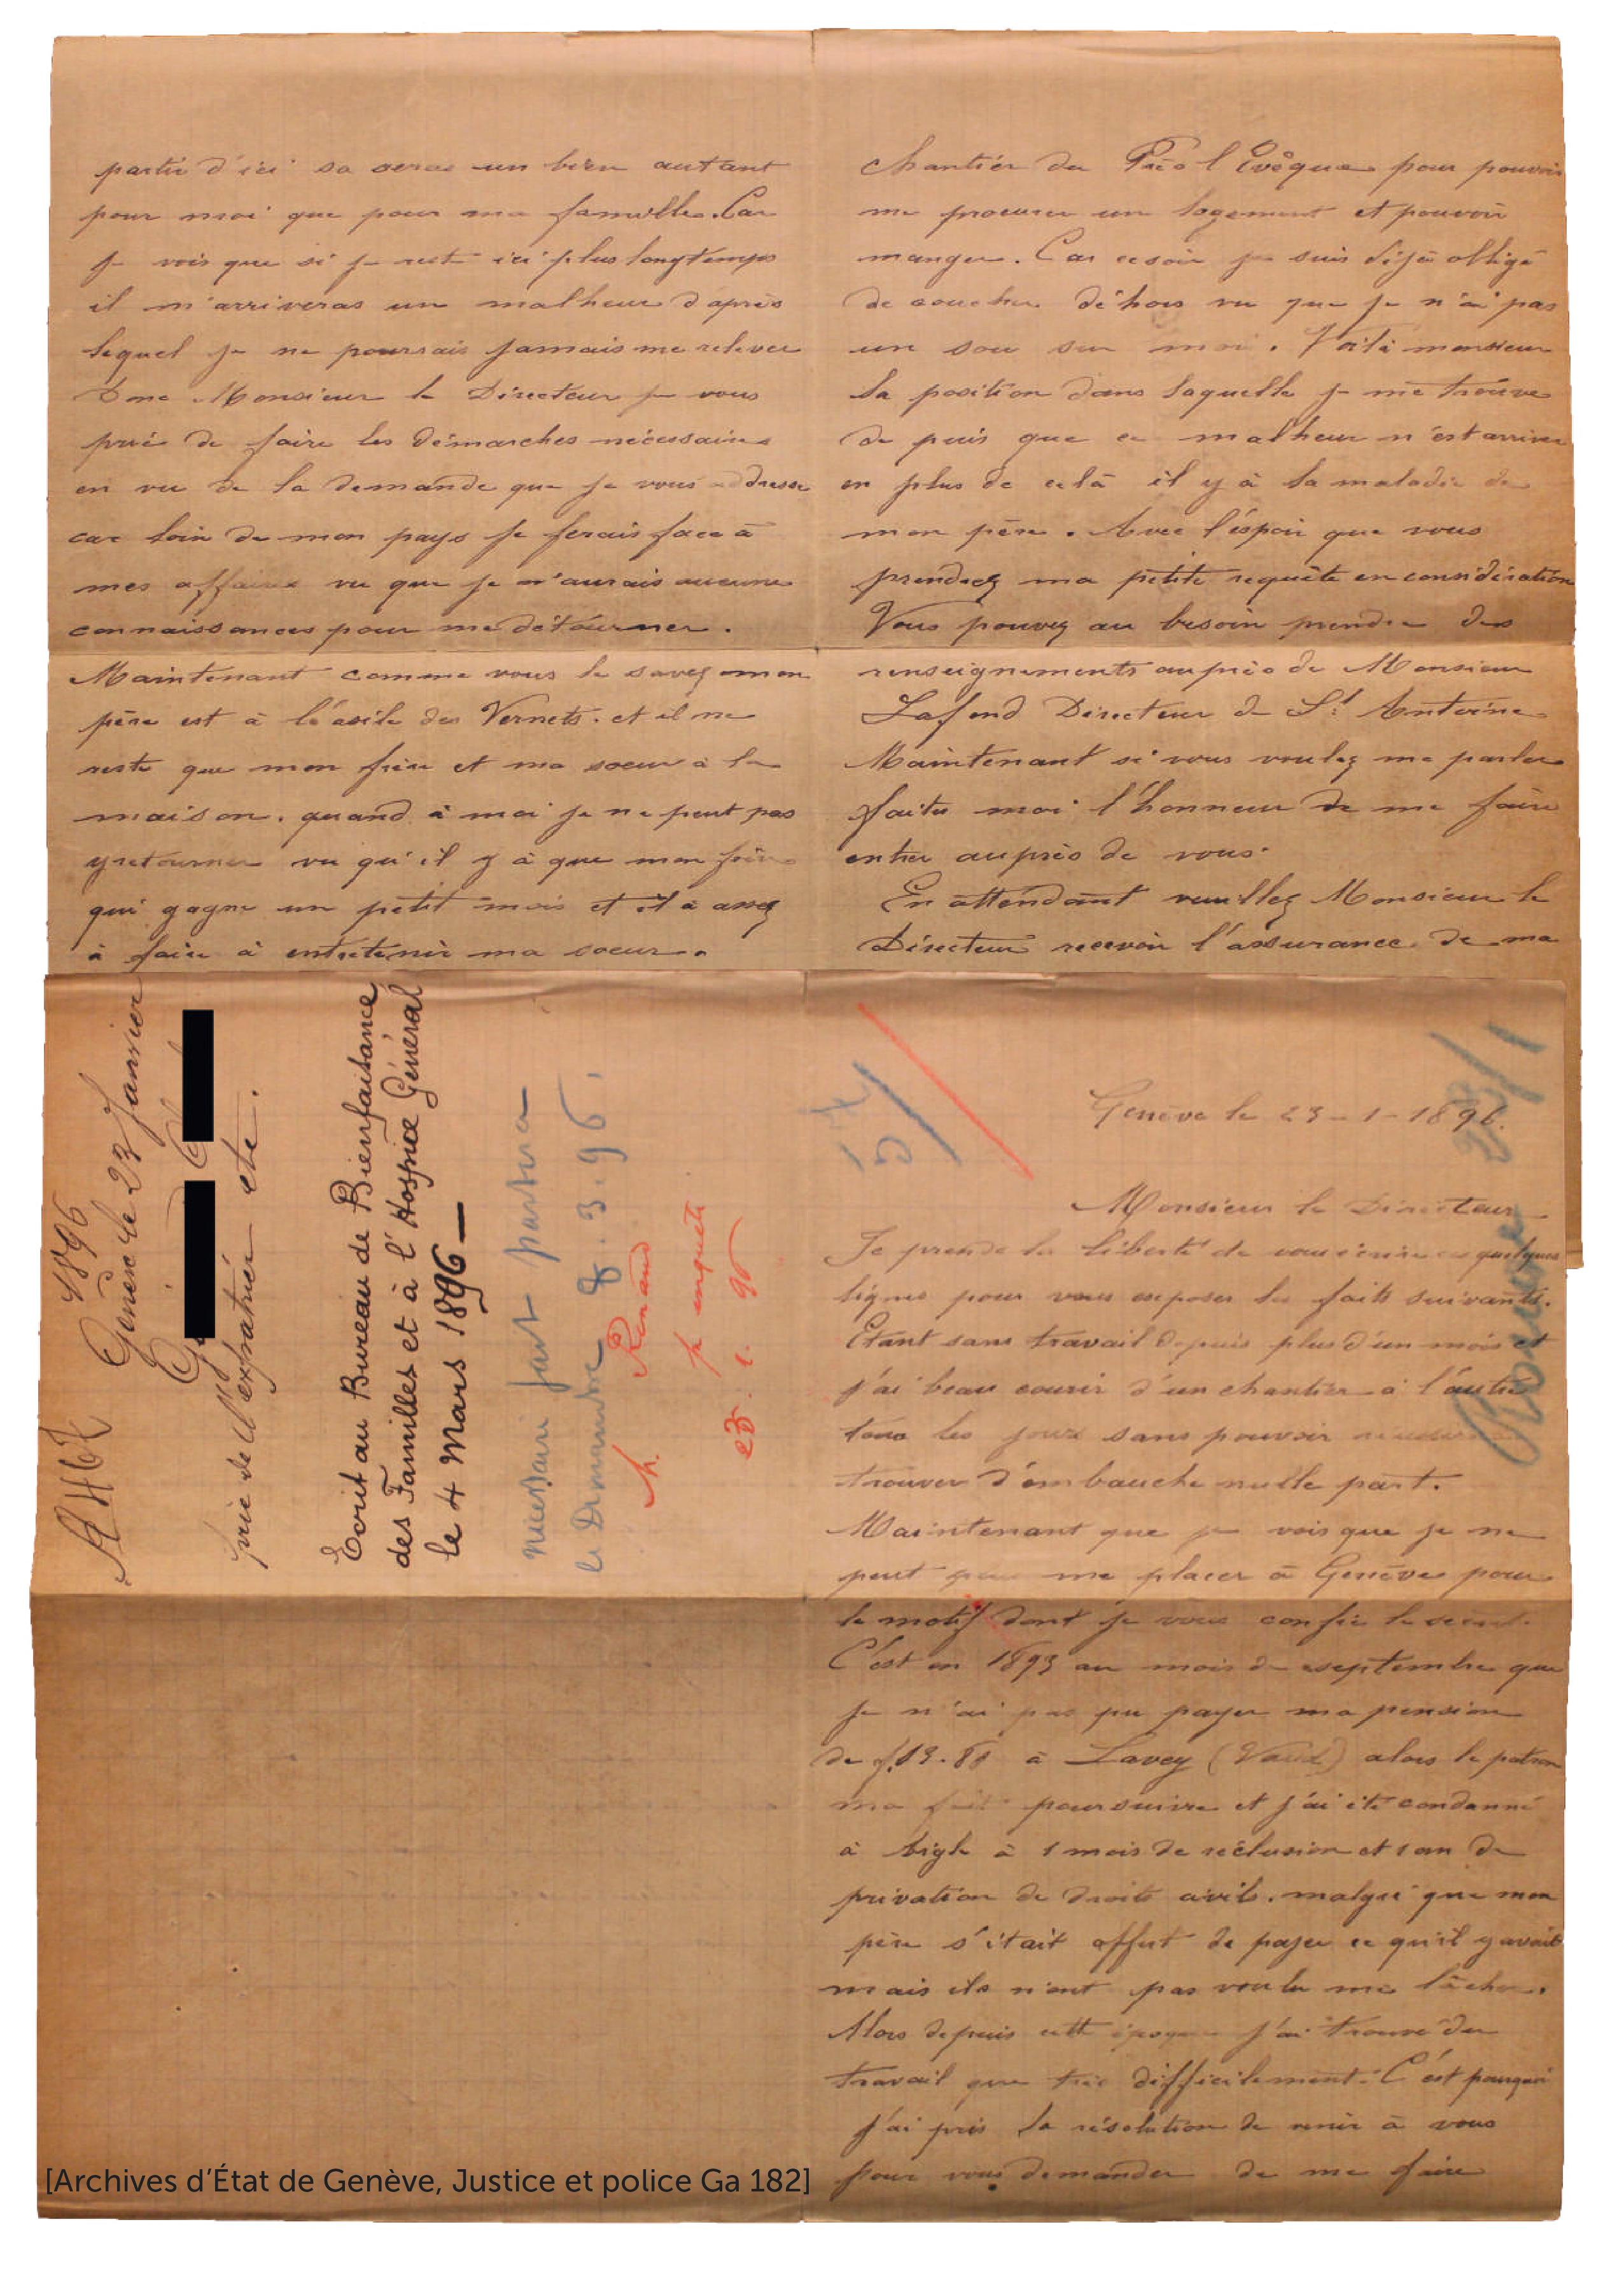 Genève le 23-1-1896.
Monsieur le Directeur
Je prends la liberté de vous écrire ces quelques
lignes pour vous exposer les faits suivants.
Etant sans travail depuis plus d'un mois et
j'ai beau courir d'un chantier à l'autre
tous les jours sans pouvoir
trouver d'embauche nulle part.
Maintenant que je vois que je ne
peut pas me placer à Genève pour
le motif dont je vous confie le secret.
C'est en 1893 au mois de septembre que
je n'ai pas pu payer ma pension
de f. 19.80 à Lavey (Vaud) alors le patron
ma fait poursuivre et j'ai été condanné
à Aigle à 1 mois de réclusion et 1 an de
privation de droits civils. malgré que mon
père s'était offert de payer ce qu'il y avait
mais ils n'ont pas voulu me lâcher.
Alors depuis cette époque j'ai trouvé du
travail que très difficilement. C'est pourquoi
j'ai pris la résolution de venir à vous
pour vous demander de me faire
partir d'ici sa seras un bien autant
pour moi que pour ma famille. Car
je vois que si je reste ici plus longtemps
il m'arriveras un malheur d'après
lequel je ne pourrais jamais me relever
Donc Monsieur le Directeur je vous
prié de faire les démarches nécessaires
en vu de la demande que je vous addresse
car loin de mon pays je ferais face à
mes affaires vu que je n'aurais aucune
connaissances pour me détourner.
Maintenant comme vous le savez mon
père est à l'asile des Vernets. et il ne
reste que mon frère et ma soeur à la
maison. quand à moi je ne peut pas
y retourner vu qu'il y à que mon frère
qui gagne un petit mois et il a assez
à faire à entretenir ma soeur.
chantier du Pré l'Evêque pour pouvoir
me procurer un logement et pouvoir
manger. Car ce soir je suis déjà obligé
de coucher déhors vu que je n'ai pas
un sou sur moi. Voilà monsieur
la position dans laquelle je me trouve
de puis que ce malheur n'est arriver
en plus de celà il y à la maladie de
mon père. Avec l'éspoir que vous
prendrez ma petite requête en considération
Vous pouvez au besoin prendre des
renseignements auprès de Monsieur
Lafond Directeur de St Antoine
Maintenant si vous voulez me parler
faites moi l'honneur de me faire
entrer auprès de vous.
En attendant veuillez Monsieur le
Directeur recevoir l'assurance de ma
1896
Genève le 23 Janvier
prie de l'expatrier etc.
Ecrit au Bureau de Bienfaisance
des Familles et à l'Hospice Général
le 4 Mars 1896
necessaire fait partira
le Dimanche 8.3.96.
M. Renaud
pr enquête
23.1.96
[Archives d'État de Genève, Justice et police Ga 182]